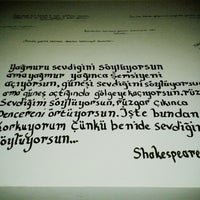 Yağmuru sevdiğini söylüyorsun
ama yağmur yağınca şemsiyeni
açıyorsun, güneşi sevdiğini söylüyorsun
ama güneş açtığında gölgeye kaçıyorsun,
Sevdiğini söylüyorsun, rüzgar çıkınca
Pencereni örtüyorsun. İşte bundan
korkuyorum Çünkü beni de sevdiğin
söylüyorsun...
Shakespeare